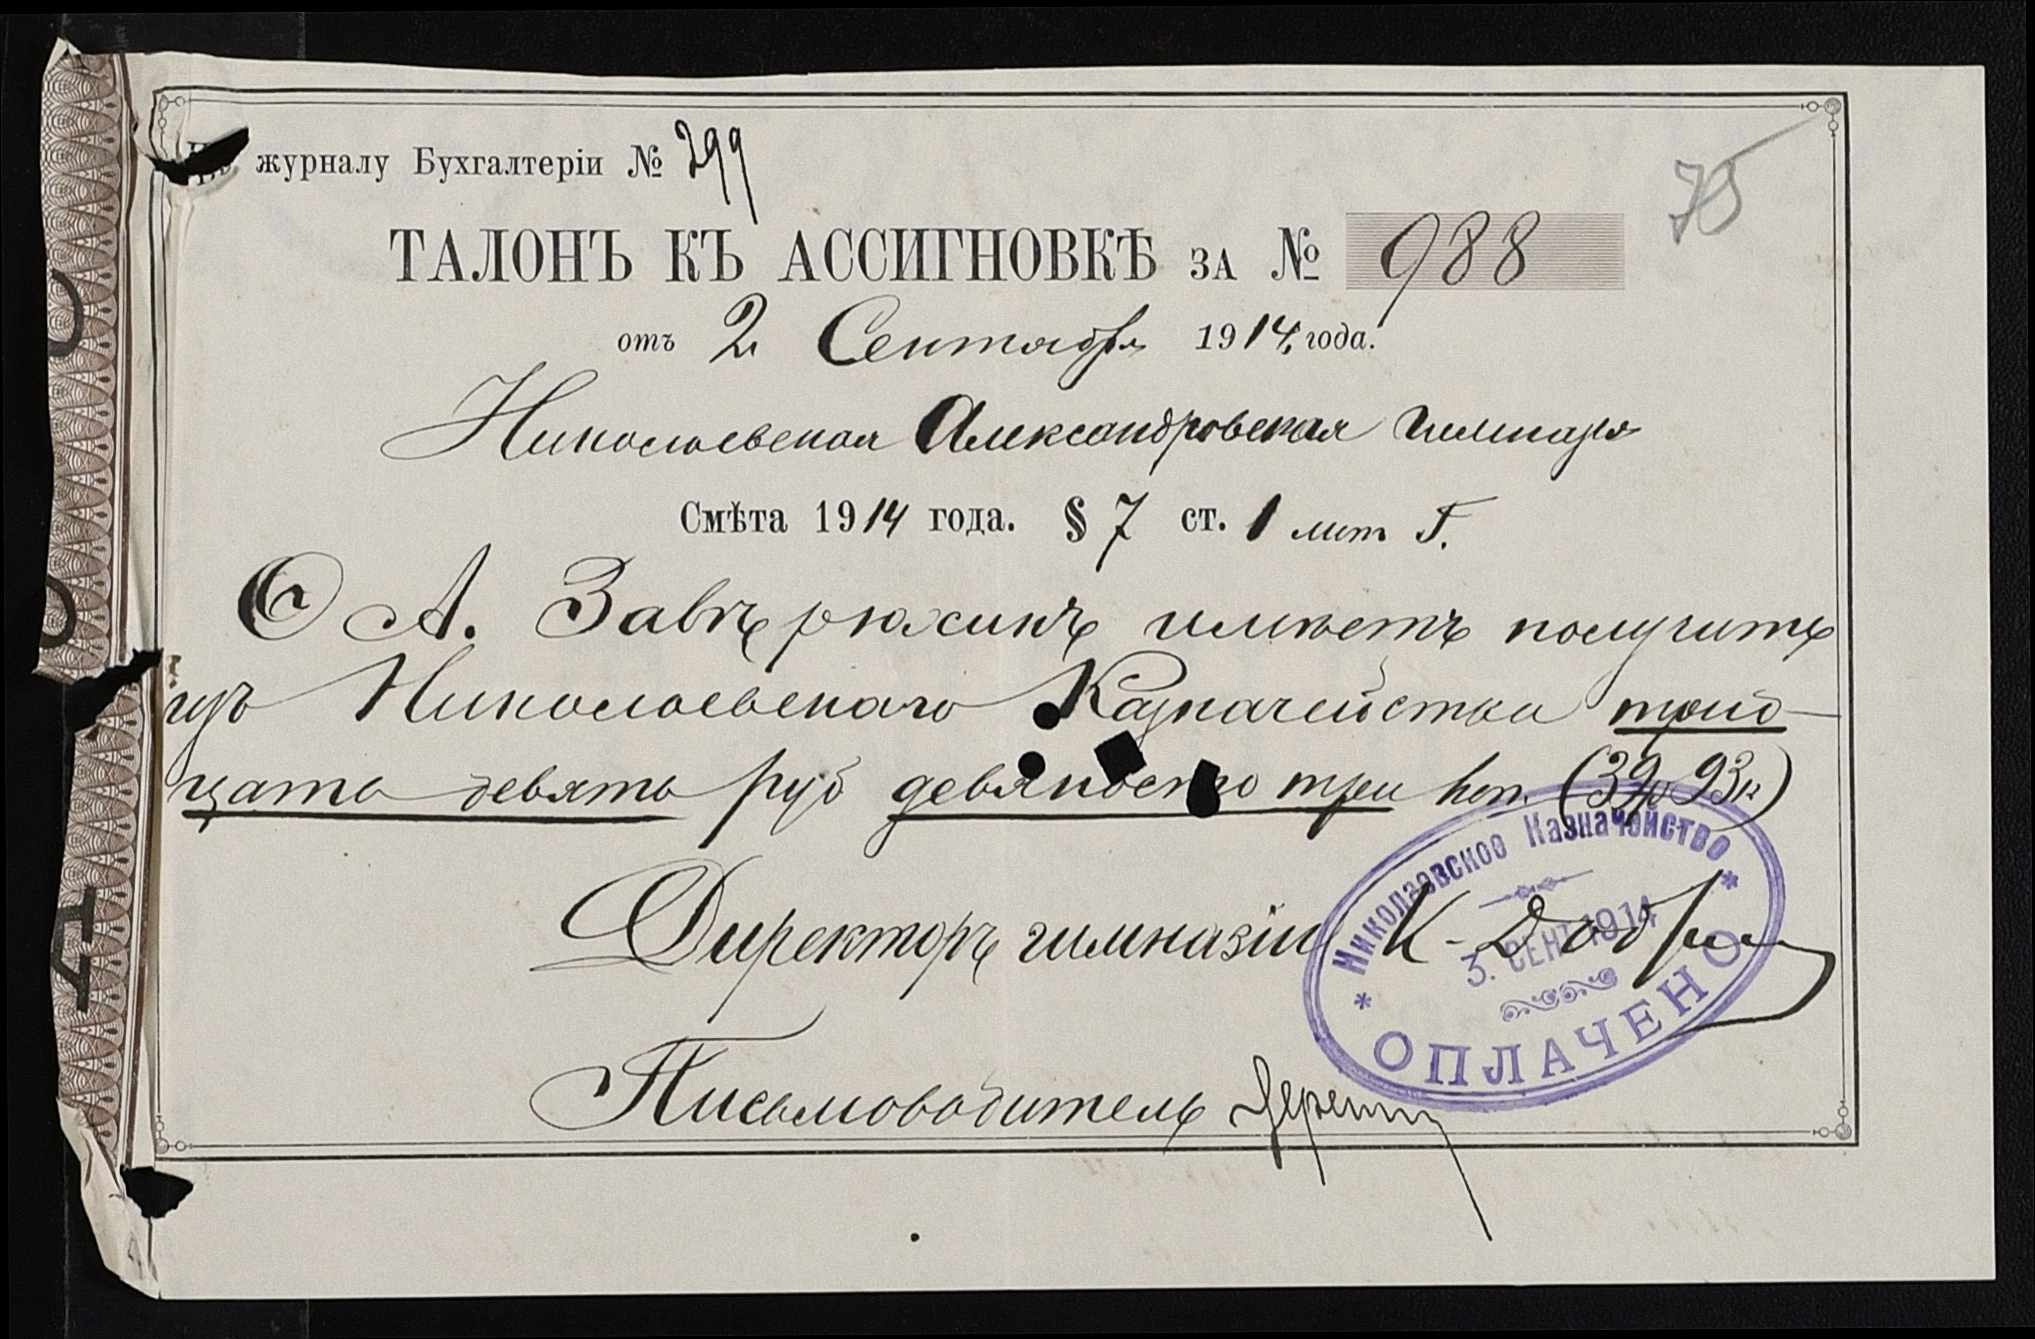 По журналу Бухгалтеріи № 299
75
ТАЛОНЪ КЪ АССИГНОВКѢ ЗА № 988
отъ 2 Сентября 1914 года.
Николаевская Александровская гимназія
Смѣта 1914 года. § 7 ст. 1 лит Г.
А. Завѣрюхинъ имѣетъ получить
изъ Николаевскаго Казначейства трид-
цать девять руб девяносто три коп. (39р 93к)
Николаевское Казначейство
3. СЕНТ 1914
ОПЛАЧЕНО
Директоръ гимназіи К.
Письмоводитель